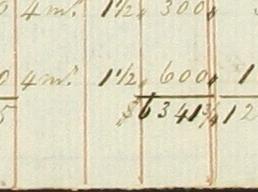 4 m.s 1½ 300
0 4 m.s 1½ 600 1
5 $6341¾ 12